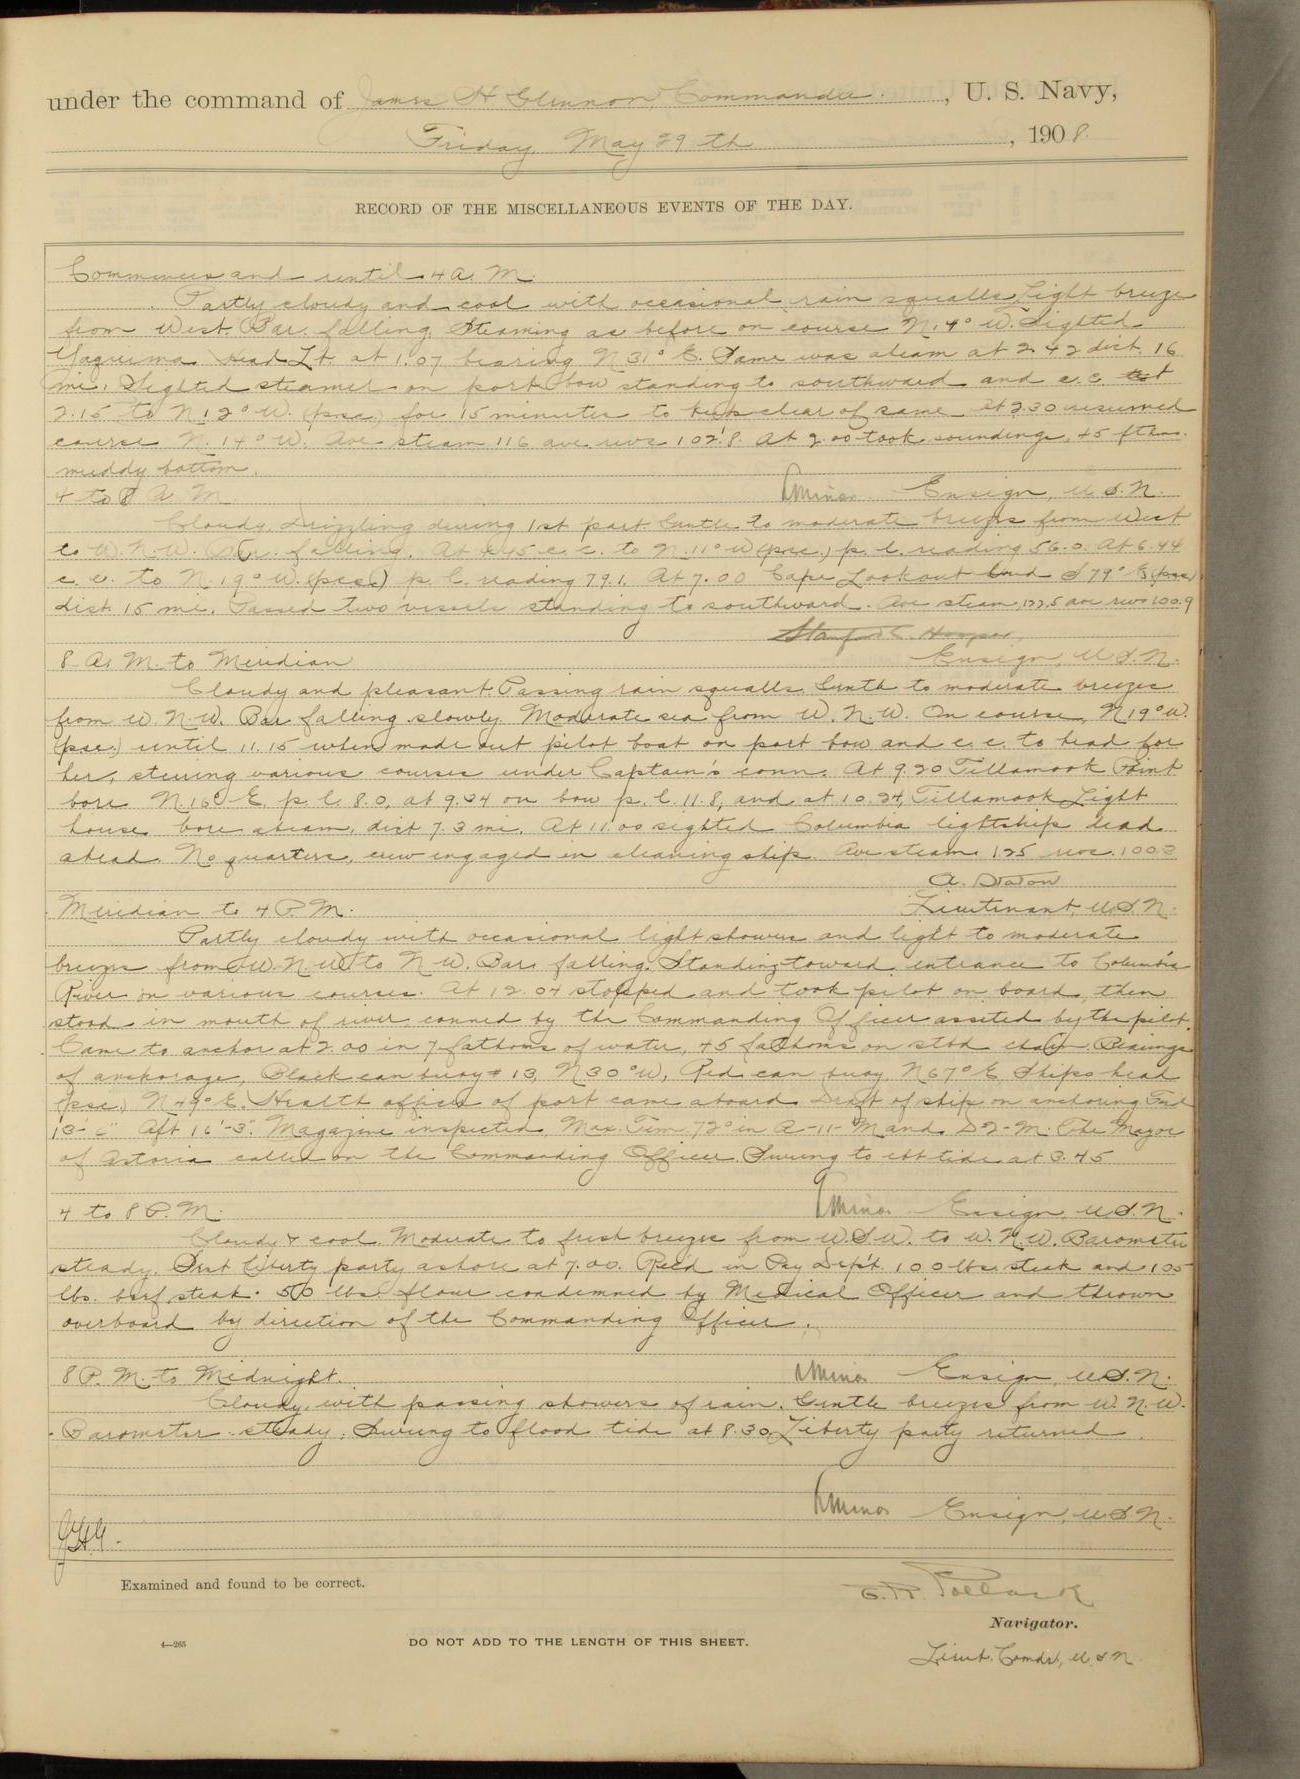 under the command of James H Glennon Commander, U. S. Navy,
Friday May 29 th, 1908.
RECORD OF THE MISCELLANEOUS EVENTS OF THE DAY.
Commences and until 4 A. M.
Partly cloudy and cool with occasional rain squalls, Light breeze
from West. Bar. falling. Steaming as before on course N. 14° W. Sighted
Yaquima Head Lt. at 1.07 bearing N 31° E. Same was abeam at 2.42 dist. 16
mi. Sighted steamer on port bow standing to southward and c. c. at
2.15 to N 12° W. (psc.) for 15 minutes to keep clear of same. At 2.30 resumed
course N. 14° W. Ave steam 116 ave. revs 102.8. At 2.00 took soundings, 45 fthms.
muddy bottom.
4 to 8 A. M. Ensign, U. S. N.
Cloudy. Drizzling during 1st part. Gentle to moderate breezes from West
to W. N. W. Bar. falling. At 45 c. c. to N. 11° W (psc.) p. l. reading 56.0. At 6.44
c. c. to N. 19° W. (psc.) p. l. reading 79.1. At 7.00 Cape Lookout S 79° E (psc)
dist. 15 mi. Passed two vessels standing to southward. Ave steam 122.5 ave revs 100.9
Stanford C. Hooper,
8 A. M. to Meridian Ensign, U. S. N.
Cloudy and pleasant. Passing rain squalls. Gentle to moderate breezes
from W. N. W. Bar falling slowly. Moderate sea from W. N. W. On course, N 19° W.
(psc.) until 11.15 when made out pilot boat on port bow and c. c. to head for
her, steering various courses under Captain's conn. At 9.20 Tillamook Point
bore N. 16° E. p. l. 8.0, at 9.34 on bow p. l. 11.8, and at 10.24, Tillamook Light
house bore abeam, dist 7.3 mi. At 11.00 sighted Columbia lightship dead
ahead. No quarters, crew engaged in cleaning ship. Ave steam 125 revs. 100.3
A. Staton
Meridian to 4 P. M. Lieutenant, U. S. N.
Partly cloudy with occasional light showers and light to moderate
breezes from W. N. W. to N. W. Bar. falling. Standing toward entrance to Columbia
River on various courses. At 12.04 stopped and took pilot on board, then
stood in mouth of river, conned by the Commanding Officer assited by the pilot.
Came to anchor at 2.00 in 7 fathoms of water, 45 fathoms on stbd chain. Bearings
of anchorage, Black can buoy # 13, N 30° W, Red can buoy N 67° E. Ships head
(psc.) N 49° E. Health officer of port came aboard. Draft of ship on anchoring Fwd
13'-6" Aft 16'-3". Magazine inspected. Max. Tem. 72° in A-11-M and D 2-M. The Mayor
of Astoria called on the Commanding Officer. Swung to ebb tide at 3.45
4 to 8 P. M. Ensign, U. S. N.
Cloudy & cool. Moderate to fresh breezes from W. S. W. to W. N. W. Barometer
steady. Sent liberty party ashore at 7.00. Rec'd in Pay Dep't. 100 lbs. steak and 105
lbs. beef steak. 50 lbs. flour condemned by Medical Officer and thrown
overboard by direction of the Commanding Officer.
8 P. M. to Midnight. Ensign, U. S. N.
Cloudy with passing showers of rain. Gentle breezes from W. N. W.
Barometer steady. Swung to flood tide at 8.30. Liberty party returned.
Ensign, U. S. N.
J.H.G.
Examined and found to be correct.
E. R. Pollock
Navigator.
4—265
DO NOT ADD TO THE LENGTH OF THIS SHEET.
Lieut. Comdr, U. S. N.